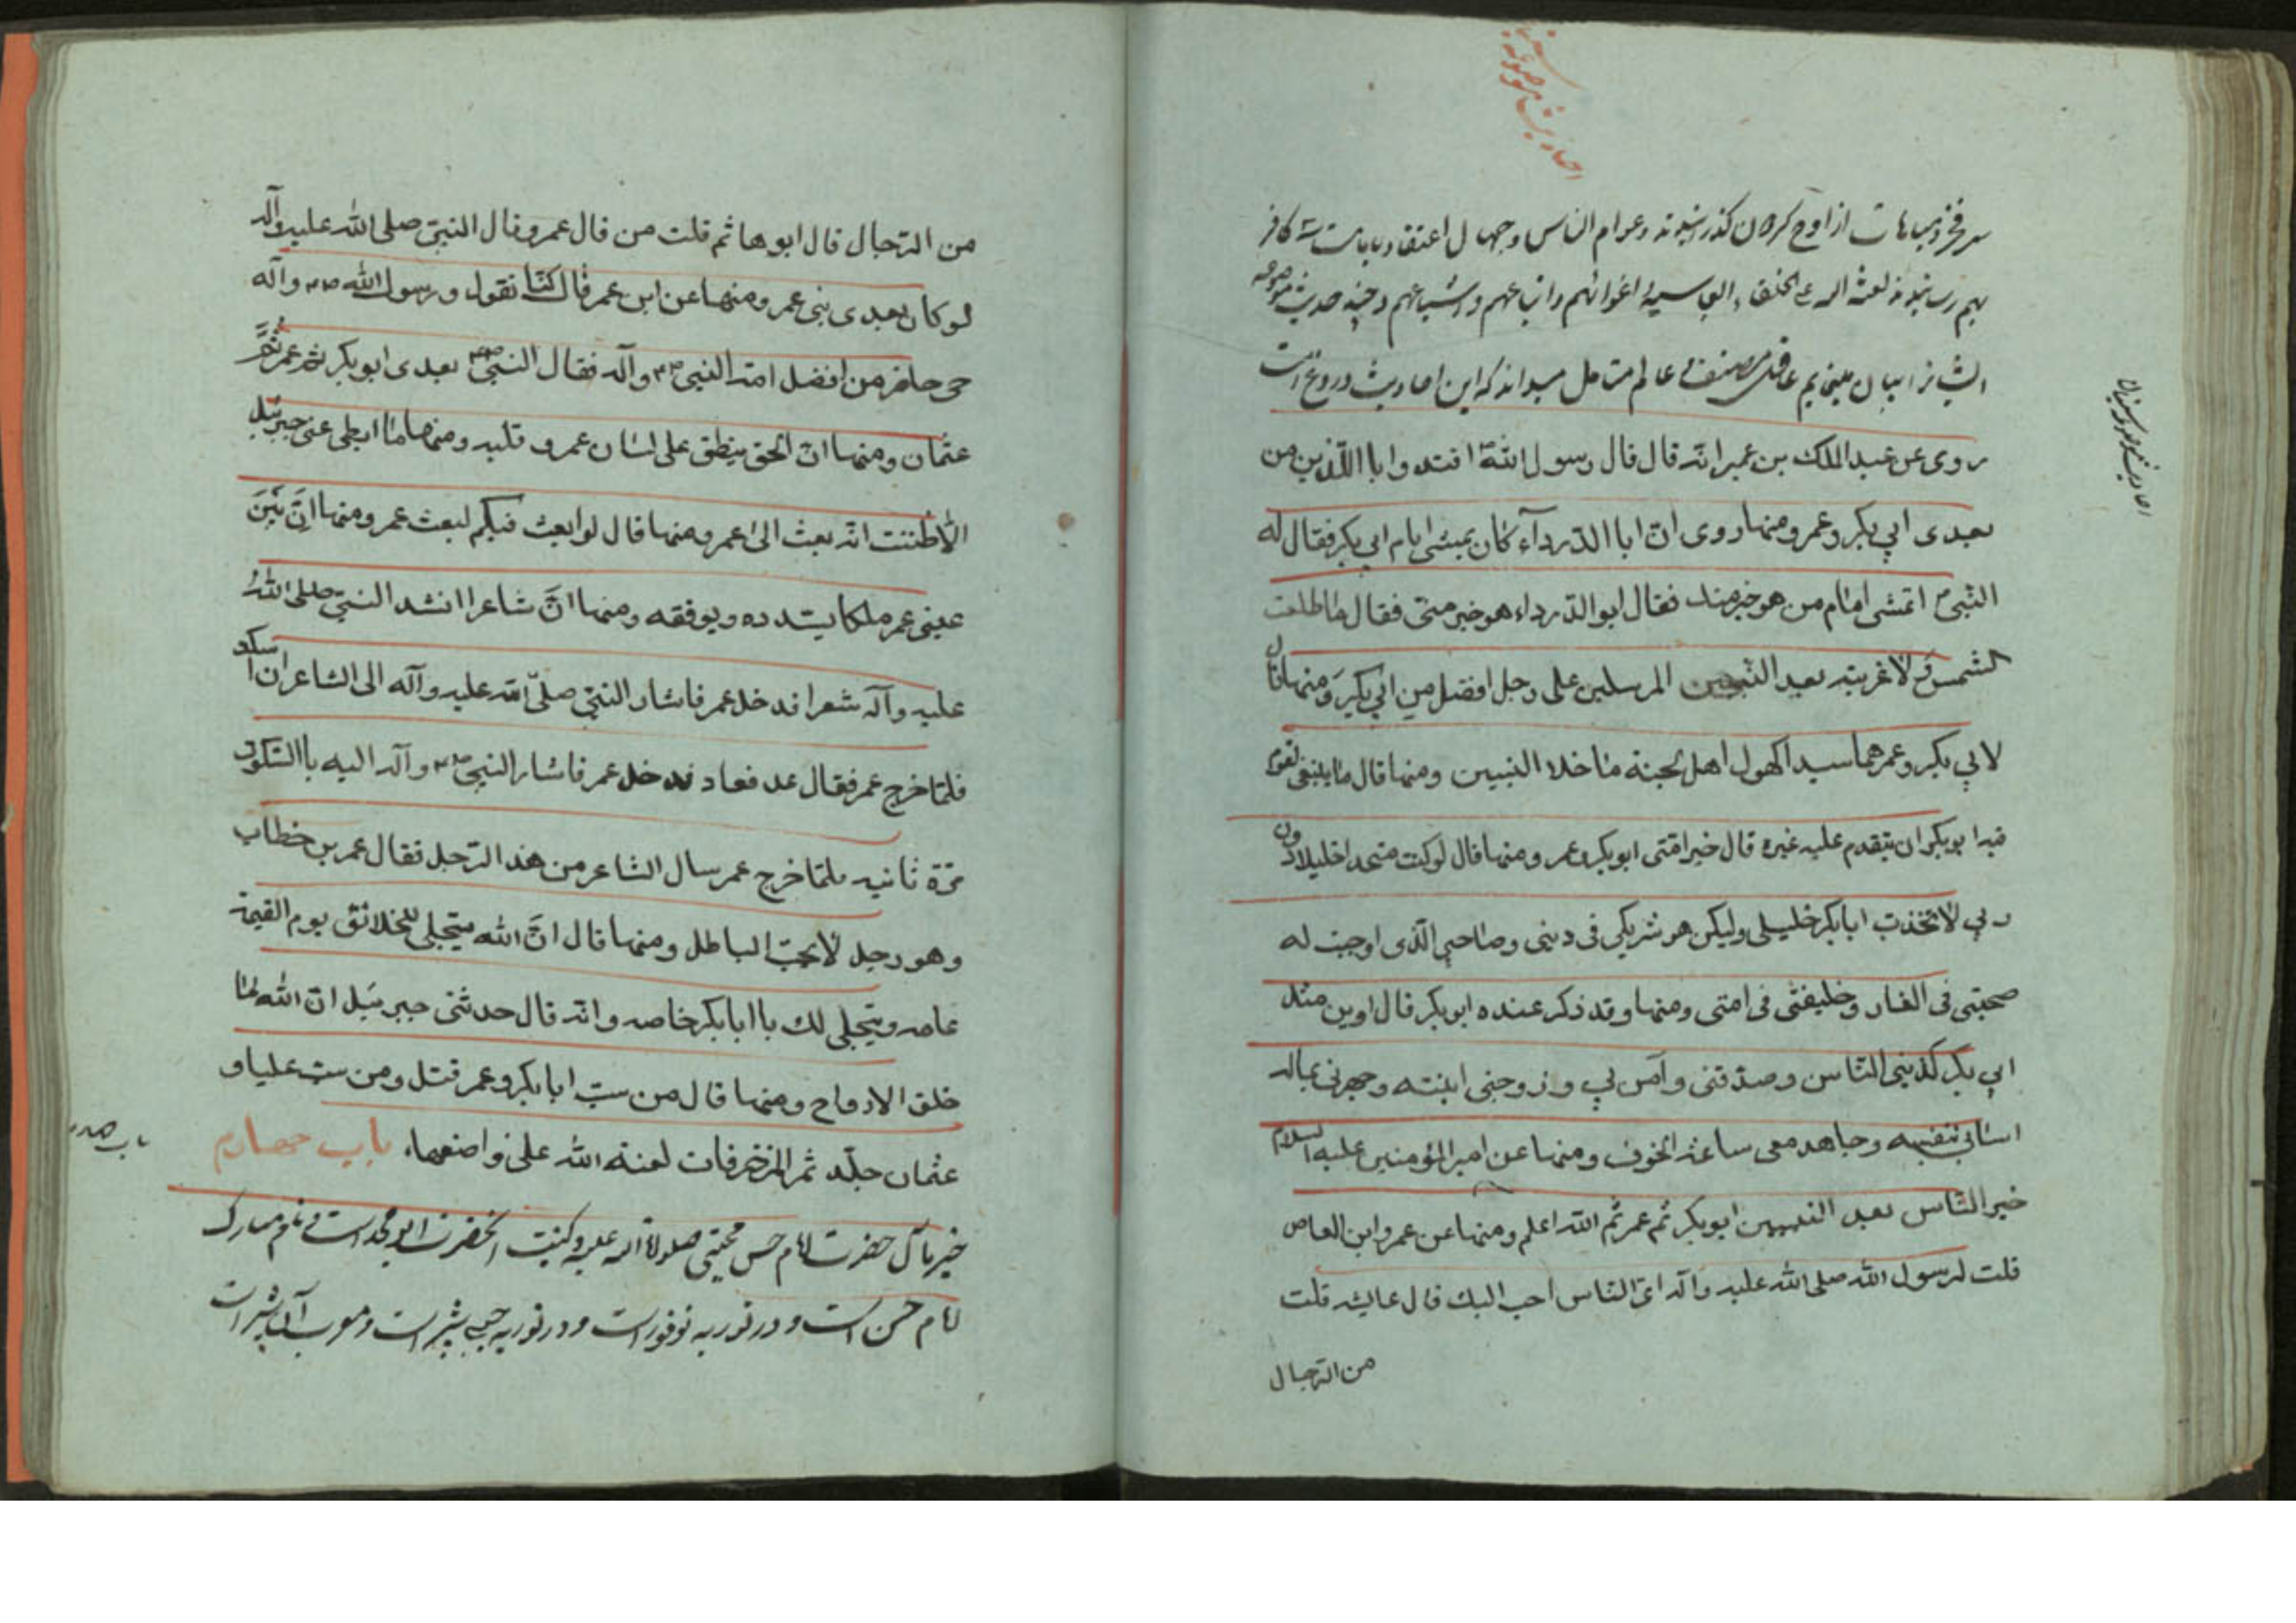 احادیث موضوعه
سر فخر و مباهات از اوج کردان گذرانیدند و عوام الناس و جهال اعتقاد
بهم رسانیدند لعنة الله علی الخلفاء العباسیة اغوائهم و اتباعهم و اشیاعهم و چند حدیث موضوعه
ایشانرا بیان مینمایم عاقل منصف و عالم متامل میداند که این احادیث دروغ است
روی عن عبد الملک بن عمیر انه قال قال رسول الله اقتدوا باالّلذین من
بعدی ابی بکر و عمر و منها روی انّ ابا الدّرداء کان یمشی امام ابی بکر فقال له
النّبی اتمشی امام من هو خیر منک فقال ابو الدّرداء هو خیر منّی فقال ما طلعت
الشمس و لا غربت بعد النّبیین المرسلین علی رجل افضل من ابی بکر و منها قال
لابی بکر و عمر هما سیدا کهول اهل الجنة ما خلا النبیین و منها قال ما ینبغی لقوم
فیه ابو بکر ان یتقدم علیه غیره قال خیر امّتی ابو بکر و عمر و منها قال لو کنت متخذا خلیلا دون
ربی لاتخذت ابا بکر خلیلی ولیکن هو شریکی فی دینی و صاحبی الّذی اوجبت له
صحبتی فی الغار و خلیفتی فی امتی و منها و قد ذکر عنده ابو بکر قال و این مثل
ابی بکر کذّبنی النّاس و صدّقنی و آمن بی و زوجنی ابنته و جهزنی بماله
و اسانی بنفسه و جاهد معی ساعة الخوف و منها عن امیر المؤمنین علیه السلام
خیر النّاس بعد النبیین ابو بکر ثم عمر ثم الله اعلم و منها عن عمرو ابن العاص
قلت لرسول الله صلی الله علیه و آله ایّ النّاس احب الیک قال عایشه قلت
من الرّجال
من الرّجال قال ابوها ثم قلت من قال عمر و قال النبیّ صلی الله علیه وآله
لو کان بعدی نبی عمر و منها عن ابن عمر قال کنّا نقول و رسول الله ص و آله
حی حاضر من افضل امة النبی ص و آله فقال النبی بعدی ابو بکر ثم عمر ثُمَّ
عثمان و منها انّ الحق ینطق علی لسان عمر و قلبه و منها ما ابطی عنی جبرئیل
الّا ظننت انّه بعث الی عمر و منها قال لو ابعث فیکم لبعث عمر و منها انّ بَیْنَ
عینی عمر ملکا یسدده و یوفقه و منها انَّ شاعرا انشد النبیّ صلی اللهُ
علیه و آله شعرا فدخل عمر فاشار النبیّ صلّی الله علیه و آله الی الشاعر ان اسکت
فلمّا خرج عمر فقال عد فعاد فدخل عمر فاشار النبی ص و آله الیه باالسّکوت
مرّة ثانیه فلمّا خرج عمر سال الشاعر من هذ الرّجل فقال عمر بن خطاب
و هو رجل لا یحبّ الباطل و منها قال انَّ الله یتجلی للخلائق یوم القیمة
عامه و یتجلی لک یا ابا بکر خاصه و انّه قال حدثنی جبرئیل انّ الله لمّا
خلق الارواح و منها قال من سبّ ابا بکر و عمر قتل و من سب علیا و
عثمان جلّد ثم المزخرفات لعنة الله علی واضعها، باب چهارم
حضرت امام حسن مجتبی صلواة الله علیه و کنیت آنحضرت ابو محمد است و نام مبارک
امام حسن است و در توریه